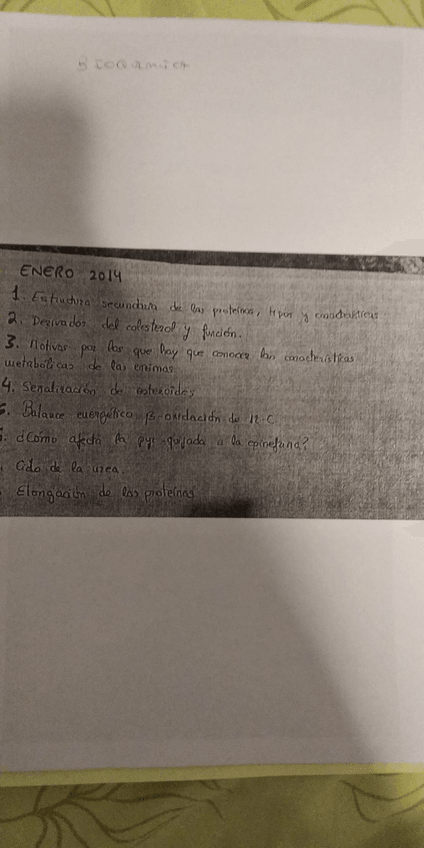 Bioquímica
ENERO 2014
1. Estructura secundaria de las proteínas, tipos y características
2. Derivados del colesterol y función.
3. Motivos por los que hay que conocer las características
metabólicas de las enzimas
4. Señalización de esteroides
5. Balance energético β-oxidación de 12 C.
6. ¿Cómo afecta la a la epinefrina?
Ciclo de la urea.
Elongación de las proteínas